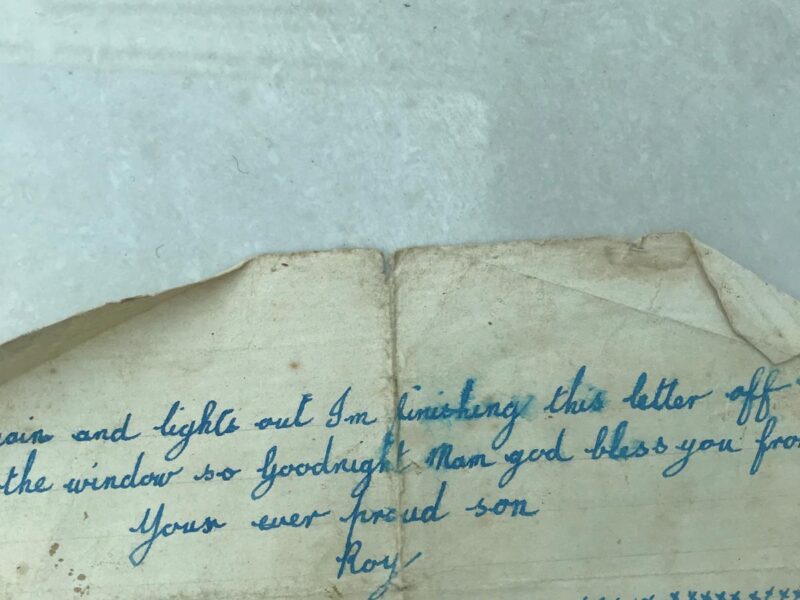 and lights out Im finishing this letter off
the window so Goodnight Mam god bless you
Your ever proud son
Roy